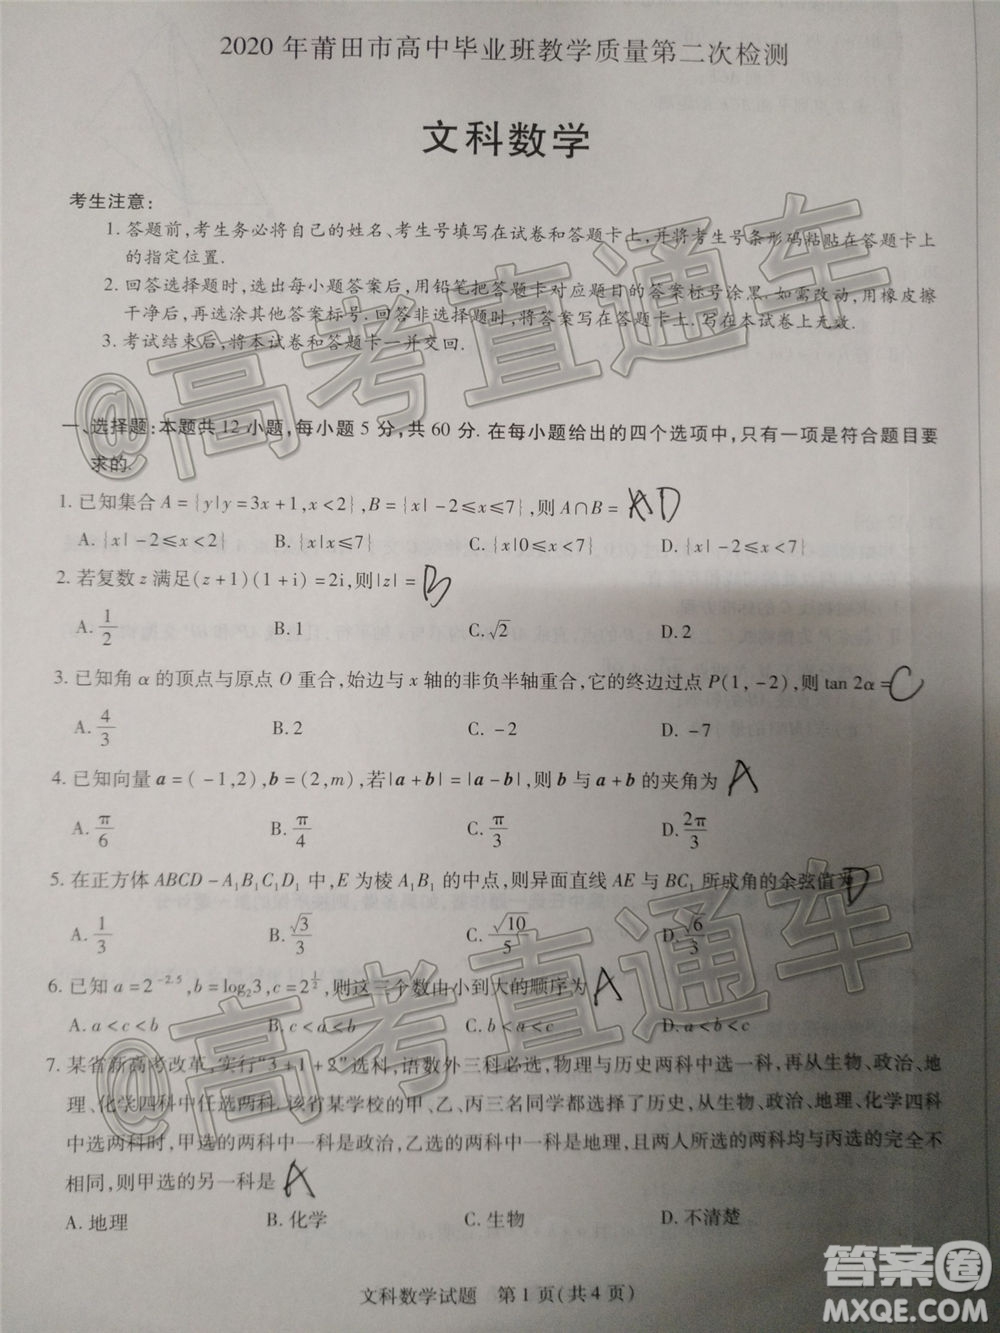 2020年莆田市高中毕业班教学质量第二次检测
文科数学
考生注意:
1. 答题前,考生务必将自己的姓名、考生号填写在试卷和答题卡上,并将考生号条形码粘贴在答题卡上
的指定位置.
2. 回答选择题时,选出每小题答案后,用铅笔把答题卡对应题目的答案标号涂黑.如需改动,用橡皮擦
干净后,再选涂其他答案标号.回答非选择题时,将答案写在答题卡上.写在本试卷上无效.
3. 考试结束后,将本试卷和答题卡一并交回.
@高考直通车
一、选择题:本题共12小题,每小题5分,共60分.在每小题给出的四个选项中,只有一项是符合题目要
求的.
1. 已知集合A={y|y=3x+1,x<2},B={x|-2≤x≤7},则A∩B= AD
A. {x|-2≤x<2} B. {x|x≤7} C. {x|0≤x<7} D. {x|-2≤x<7}
2. 若复数z满足(z+1)(1+i)=2i,则|z|= B
A. 1/2 B. 1 C. √2 D. 2
3. 已知角α的顶点与原点O重合,始边与x轴的非负半轴重合,它的终边过点P(1,-2),则tan 2α= C
A. 4/3 B. 2 C. -2 D. -7
4. 已知向量a=(-1,2),b=(2,m),若|a+b|=|a-b|,则b与a+b的夹角为 A
A. π/6 B. π/4 C. π/3 D. 2π/3
5. 在正方体ABCD-A₁B₁C₁D₁中,E为棱A₁B₁的中点,则异面直线AE与BC₁所成角的余弦值为 D
A. 1/3 B. √3/3 C. √10/5 D. √6/3
@高考直通车
6. 已知a=2^{-2.5},b=log₂3,c=2^{1/2},则这三个数由小到大的顺序为 A
A. a<c<b B. c<a<b C. b<a<c D. a<b<c
7. 某省新高考改革,实行“3+1+2”选科,语数外三科必选,物理与历史两科中选一科,再从生物、政治、地
理、化学四科中任选两科.该省某学校的甲、乙、丙三名同学都选了历史,从生物、政治、地理、化学四科
中选两科时,甲选的两科中一科是政治,乙选的两科中一科是地理,且两人所选的两科均与丙选的完全不
相同,则甲选的另一科是 A
A. 地理 B. 化学 C. 生物 D. 不清楚
文科数学试题 第1页(共4页)
答案圈
MXQE.COM